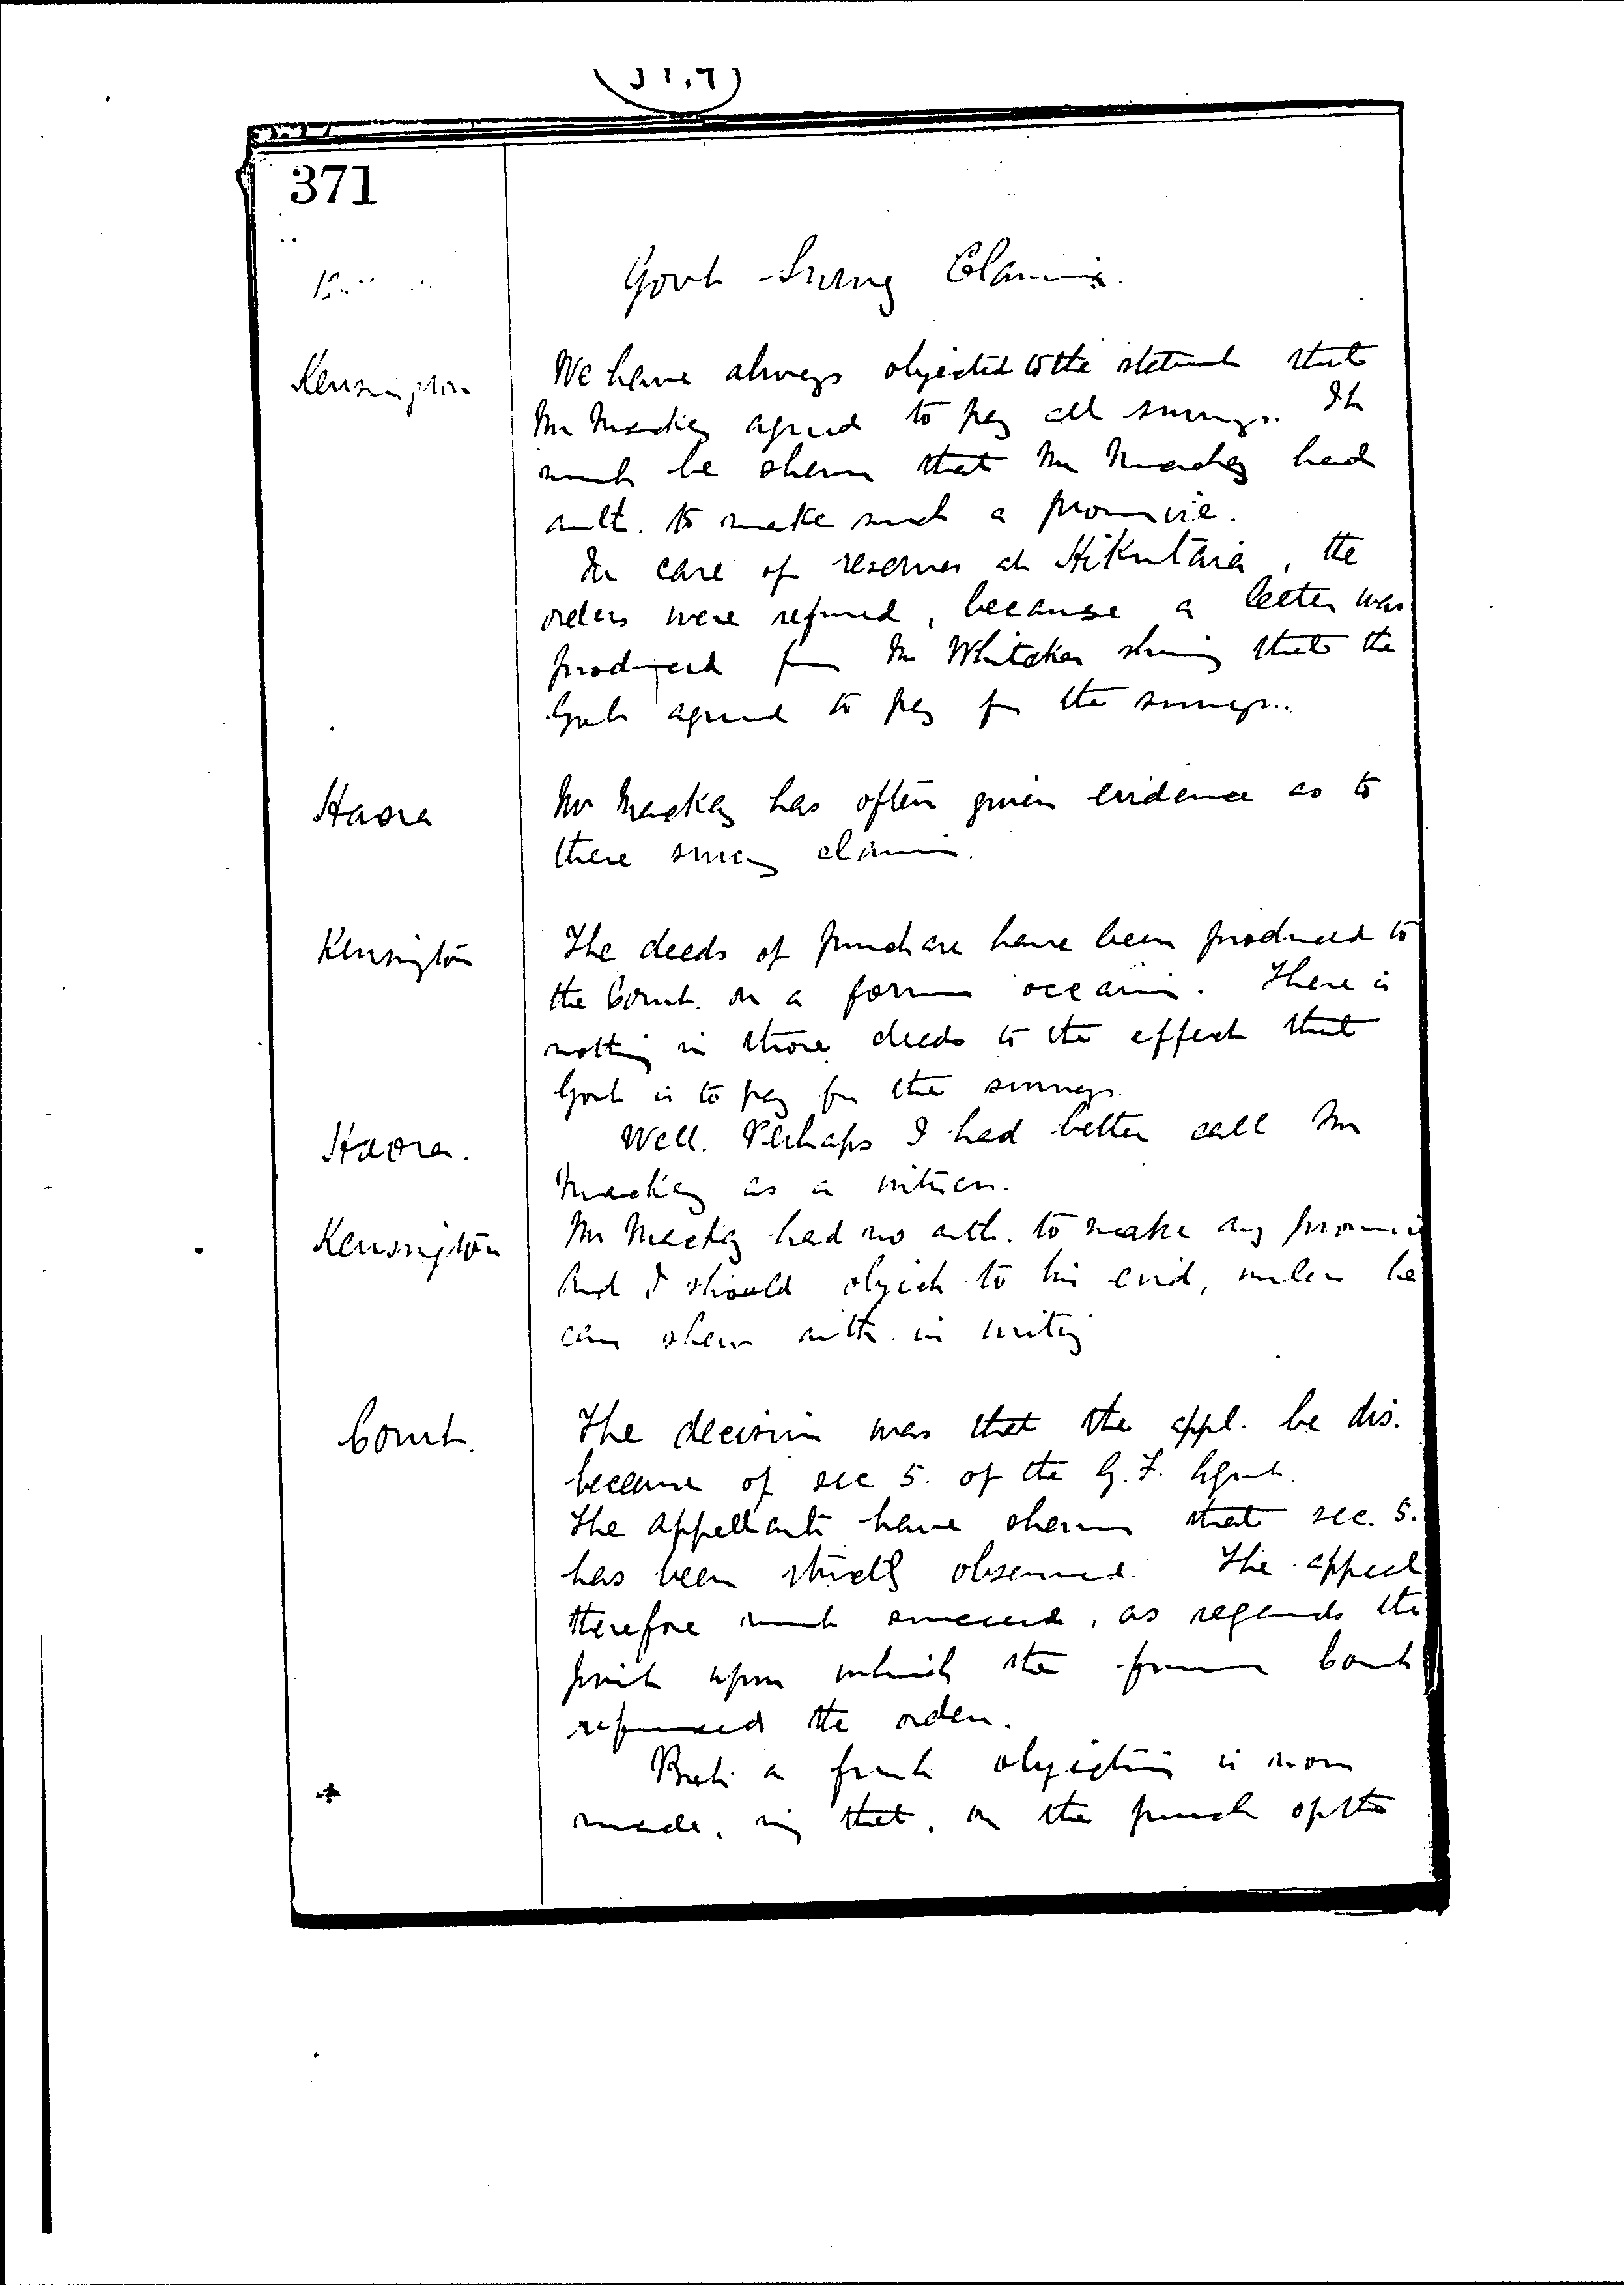 371
Govt Survey Claims.
Kensington
We have always objected to the statement that
Mr Mackay agreed to pay all surveys. It
must be shewn that Mr Mackay had
auth. to make such a promise.
In case of reserves at Hikutaia, the
orders were refused, because a letter was
produced from Mr Whitaker shewing that the
Govt agreed to pay for the surveys.
Haora
Mr Mackay has often given evidence as to
these survey claims.
Kensington
The deeds of purchase have been produced to
the Court on a former occasion. There is
nothing in those deeds to the effect that
Govt is to pay for the surveys.
Haora.
Well. Perhaps I had better call Mr
Mackay as a witness.
Kensington
Mr Mackay had no auth. to make any promise
And I should object to his evid, unless he
can shew auth. in writing
Court.
The decision was that the appl. be dis.
because of sec 5. of the G. F. Agmt.
The appellants have shewn that sec. 5.
has been strictly observed. The appeal
therefore must succeed, as regards the
point upon which the former Court
refused the order.
But a fresh objection is now
made, viz that, on the purch of the